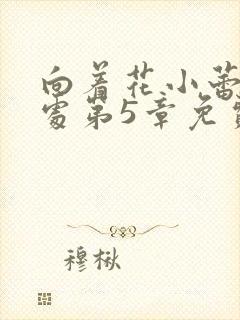 向着花小蕾
处第5章免
穆楸